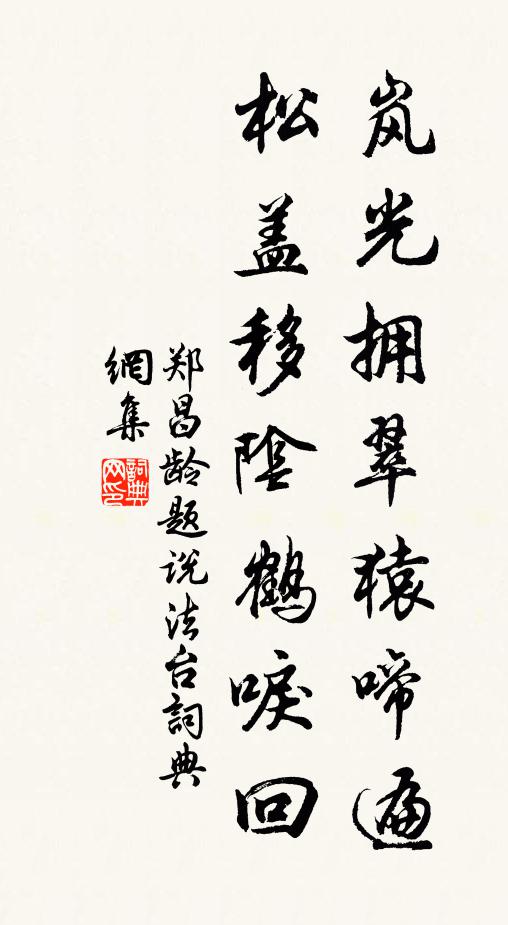 岚光拥翠猿啼遍
松盖移陰鶴唳回
郑昌龄题说法台詞典
網集
詞典网印